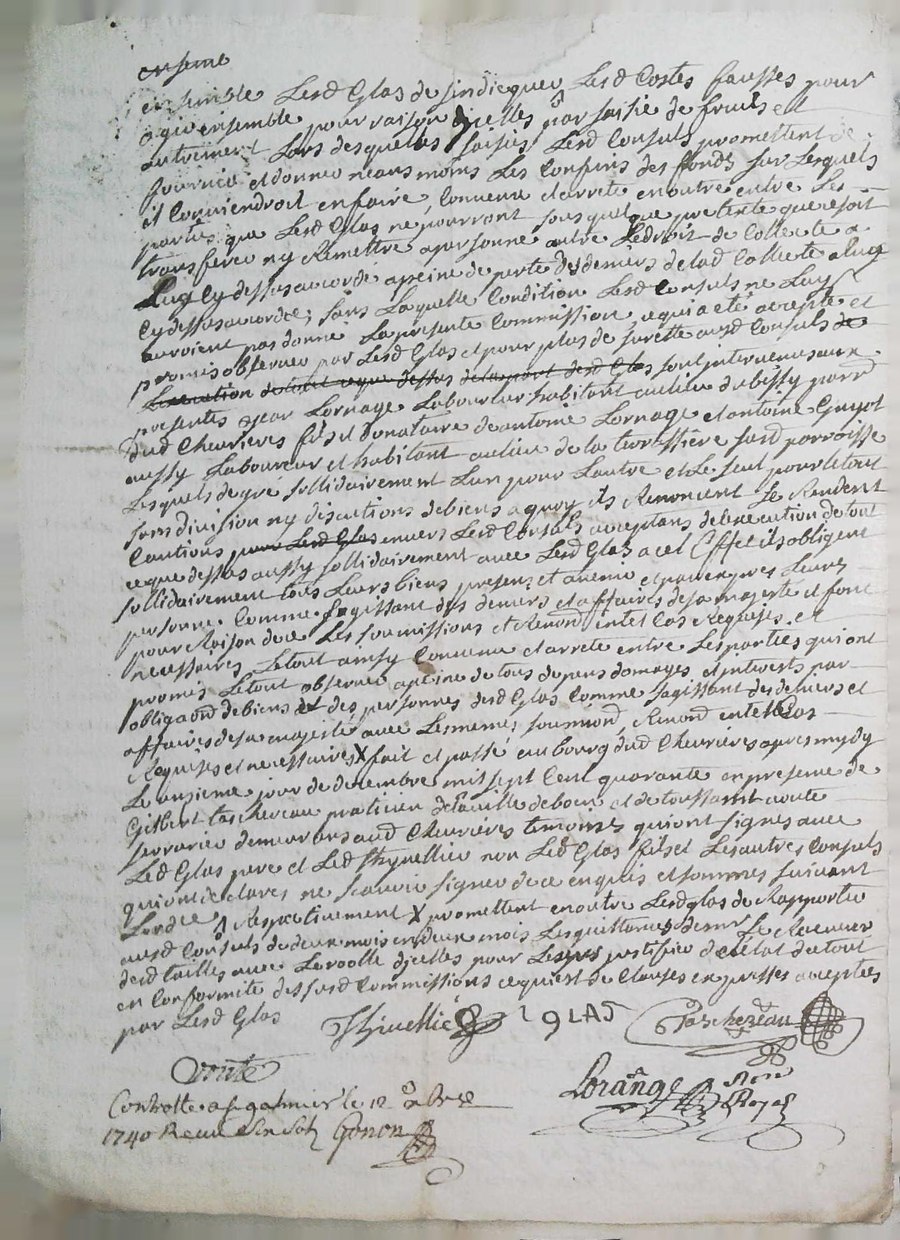 enseme
ensemble Lesd Glas de sindiequer Lesd Costes fausses pour
agir ensemble pour raison dicelles par saisie de fruits et
autrement Lors desquelles saisies Lesd Consuls promettent de
fournir et donner neansmoins Les Confins des fonds sur Lesquels
il Conviendroit en faire, Convenu et arrete en outre entre Les
parties que Lesd Glas ne pourront sous quelque pretexte que ce soit
transferer ny Remettre a personne autre Ledroit de Collecte a
Luy Cy dessus accorde a peine de perte des deniers de lad Collecte a luy
Cy dessus accordée; sans Laquelle Condition Lesd Consuls ne Luy
auroient pas donné La presente Commission, ce qui a eté accepté et
promis observer par Lesd Glas et pour plus de surette ausd Consuls de
Lexecution de tout ce que dessus de la part desd Glas sont intervenus aux
presentes Jean Lornage Laboureur habitant au lieu du bissy parr
dud Chevrieres fils et Donataire de antoine Lornage et antoine Guyot
aussy Laboureur et habitant au lieu de la torissière susd parroisse
Lesquels de gré sollidairement Lun pour Lautre et Le seul pour le tout
sans division ny discutions de biens a quoy ils Renoncent Se Rendent
Cautions pour Lesd Glas envers Lesd Consuls acceptans de lexecution de tout
ce que dessus aussy sollidairement avec Lesd Glas a cet Effet ils obligent
sollidairement tous Leurs biens presens et avenir et par exprès Leurs
personne Comme sagissant des deniers et affaires de sa majeste et font
pour Raison de ce Les soumissions et Renond intel Cas Requises et
necessaires. Le tout ainsy Convenu et arrete entre Les parties qui ont
promis Le tout observer a peine de tous depens domages et interests par
obligaond de biens et des personnes desd Glas Comme sagissant des deniers et
affaires de sa majesté avec Les memes soumiond, Renond intel Cas
Requises et necessaires X fait et passé au bourg dud Chevrieres apres mydy
Le onzieme jour de decembre mil sept Cent quarante en presence de
Gilbert taschereau praticien de la ville de boen et de toussaint voute
serrurier demeurans aud Chevrières temoins qui ont signés avec
Led Glas pere et Led Thynellier non Led Glas fils et Les autres Consuls
qui ont declarés ne scavoir signer de ce enquis et sommes suivant
Lordce / Respectivement X promettent en outre Lesd glas de Rapporter
ausd Consuls de deux mois en deux mois Les quittances de mr Le Receveur
desd tailles avec Le rolle dicelles pour Leurs justifier de lEtat du tout
en Conformité des susd Commissions ce qui est de Clauses expresses acceptées
par Lesd Glas
IGLAS
Taschereau
voute
Lorange
Nore Royal
Controlle a st galmier le 12 xbre
1740 Recu six sols Gonon